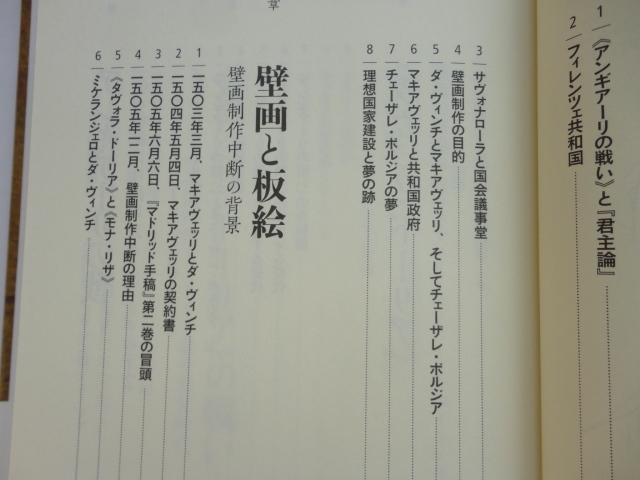 1 《アンギアーリの戦い》と『君主論』
2 フィレンツェ共和国
3 サヴォナローラと国会議事堂
4 壁画制作の目的
5 ダ・ヴィンチとマキアヴェッリ、そしてチェーザレ・ボルジア
6 マキアヴェッリと共和国政府
7 チェーザレ・ボルジアの夢
8 理想国家建設と夢の跡
章
壁画と板絵
壁画制作中断の背景
1 一五〇三年三月、マキアヴェッリとダ・ヴィンチ
2 一五〇四年五月四日、マキアヴェッリの契約書
3 一五〇五年六月六日、『マドリッド手稿』第二巻の冒頭
4 一五〇五年一二月、壁画制作中断の理由
5 《タヴォラ・ドーリア》と《モナ・リザ》
6 ミケランジェロとダ・ヴィンチ